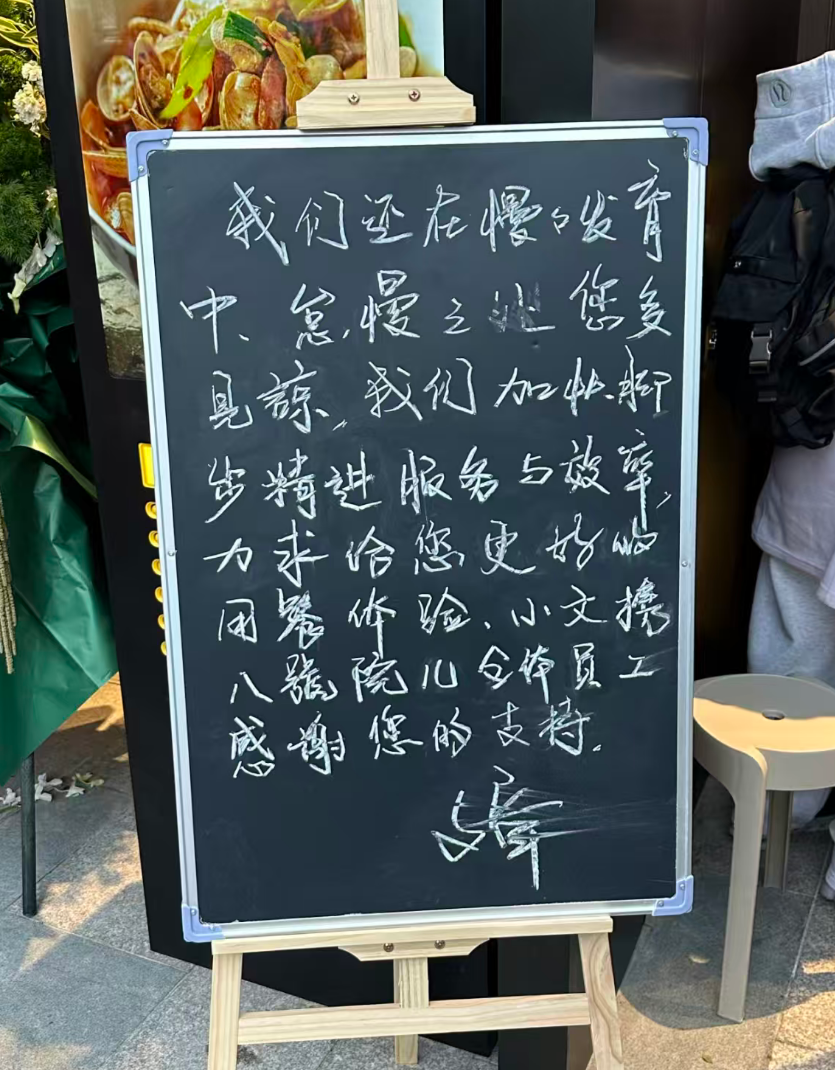 我们还在慢々发育
中、怠慢之处您多
见諒，我们加快脚
步精进服务与效率，
力求给您更好的
用餐体验、小文携
八號院儿全体员工
感谢您的支持.